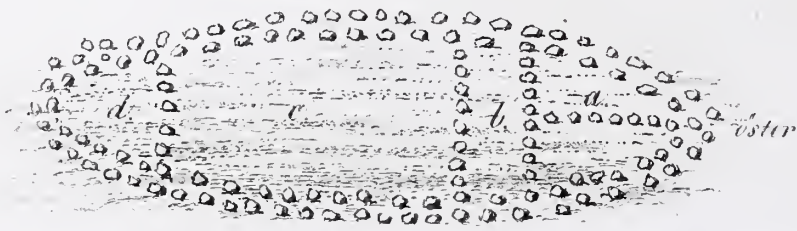 d c b a öster